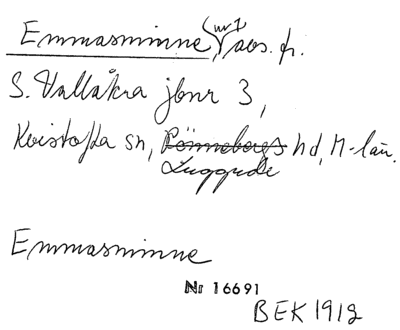 Emmasminne (nr 1) avs. fr.
S. Vallåkra jbnr 3,
Kvistofta sn, Rönnebergs hd, M-län.
Luggude
Emmasminne
Nr 16691
BEK 1912